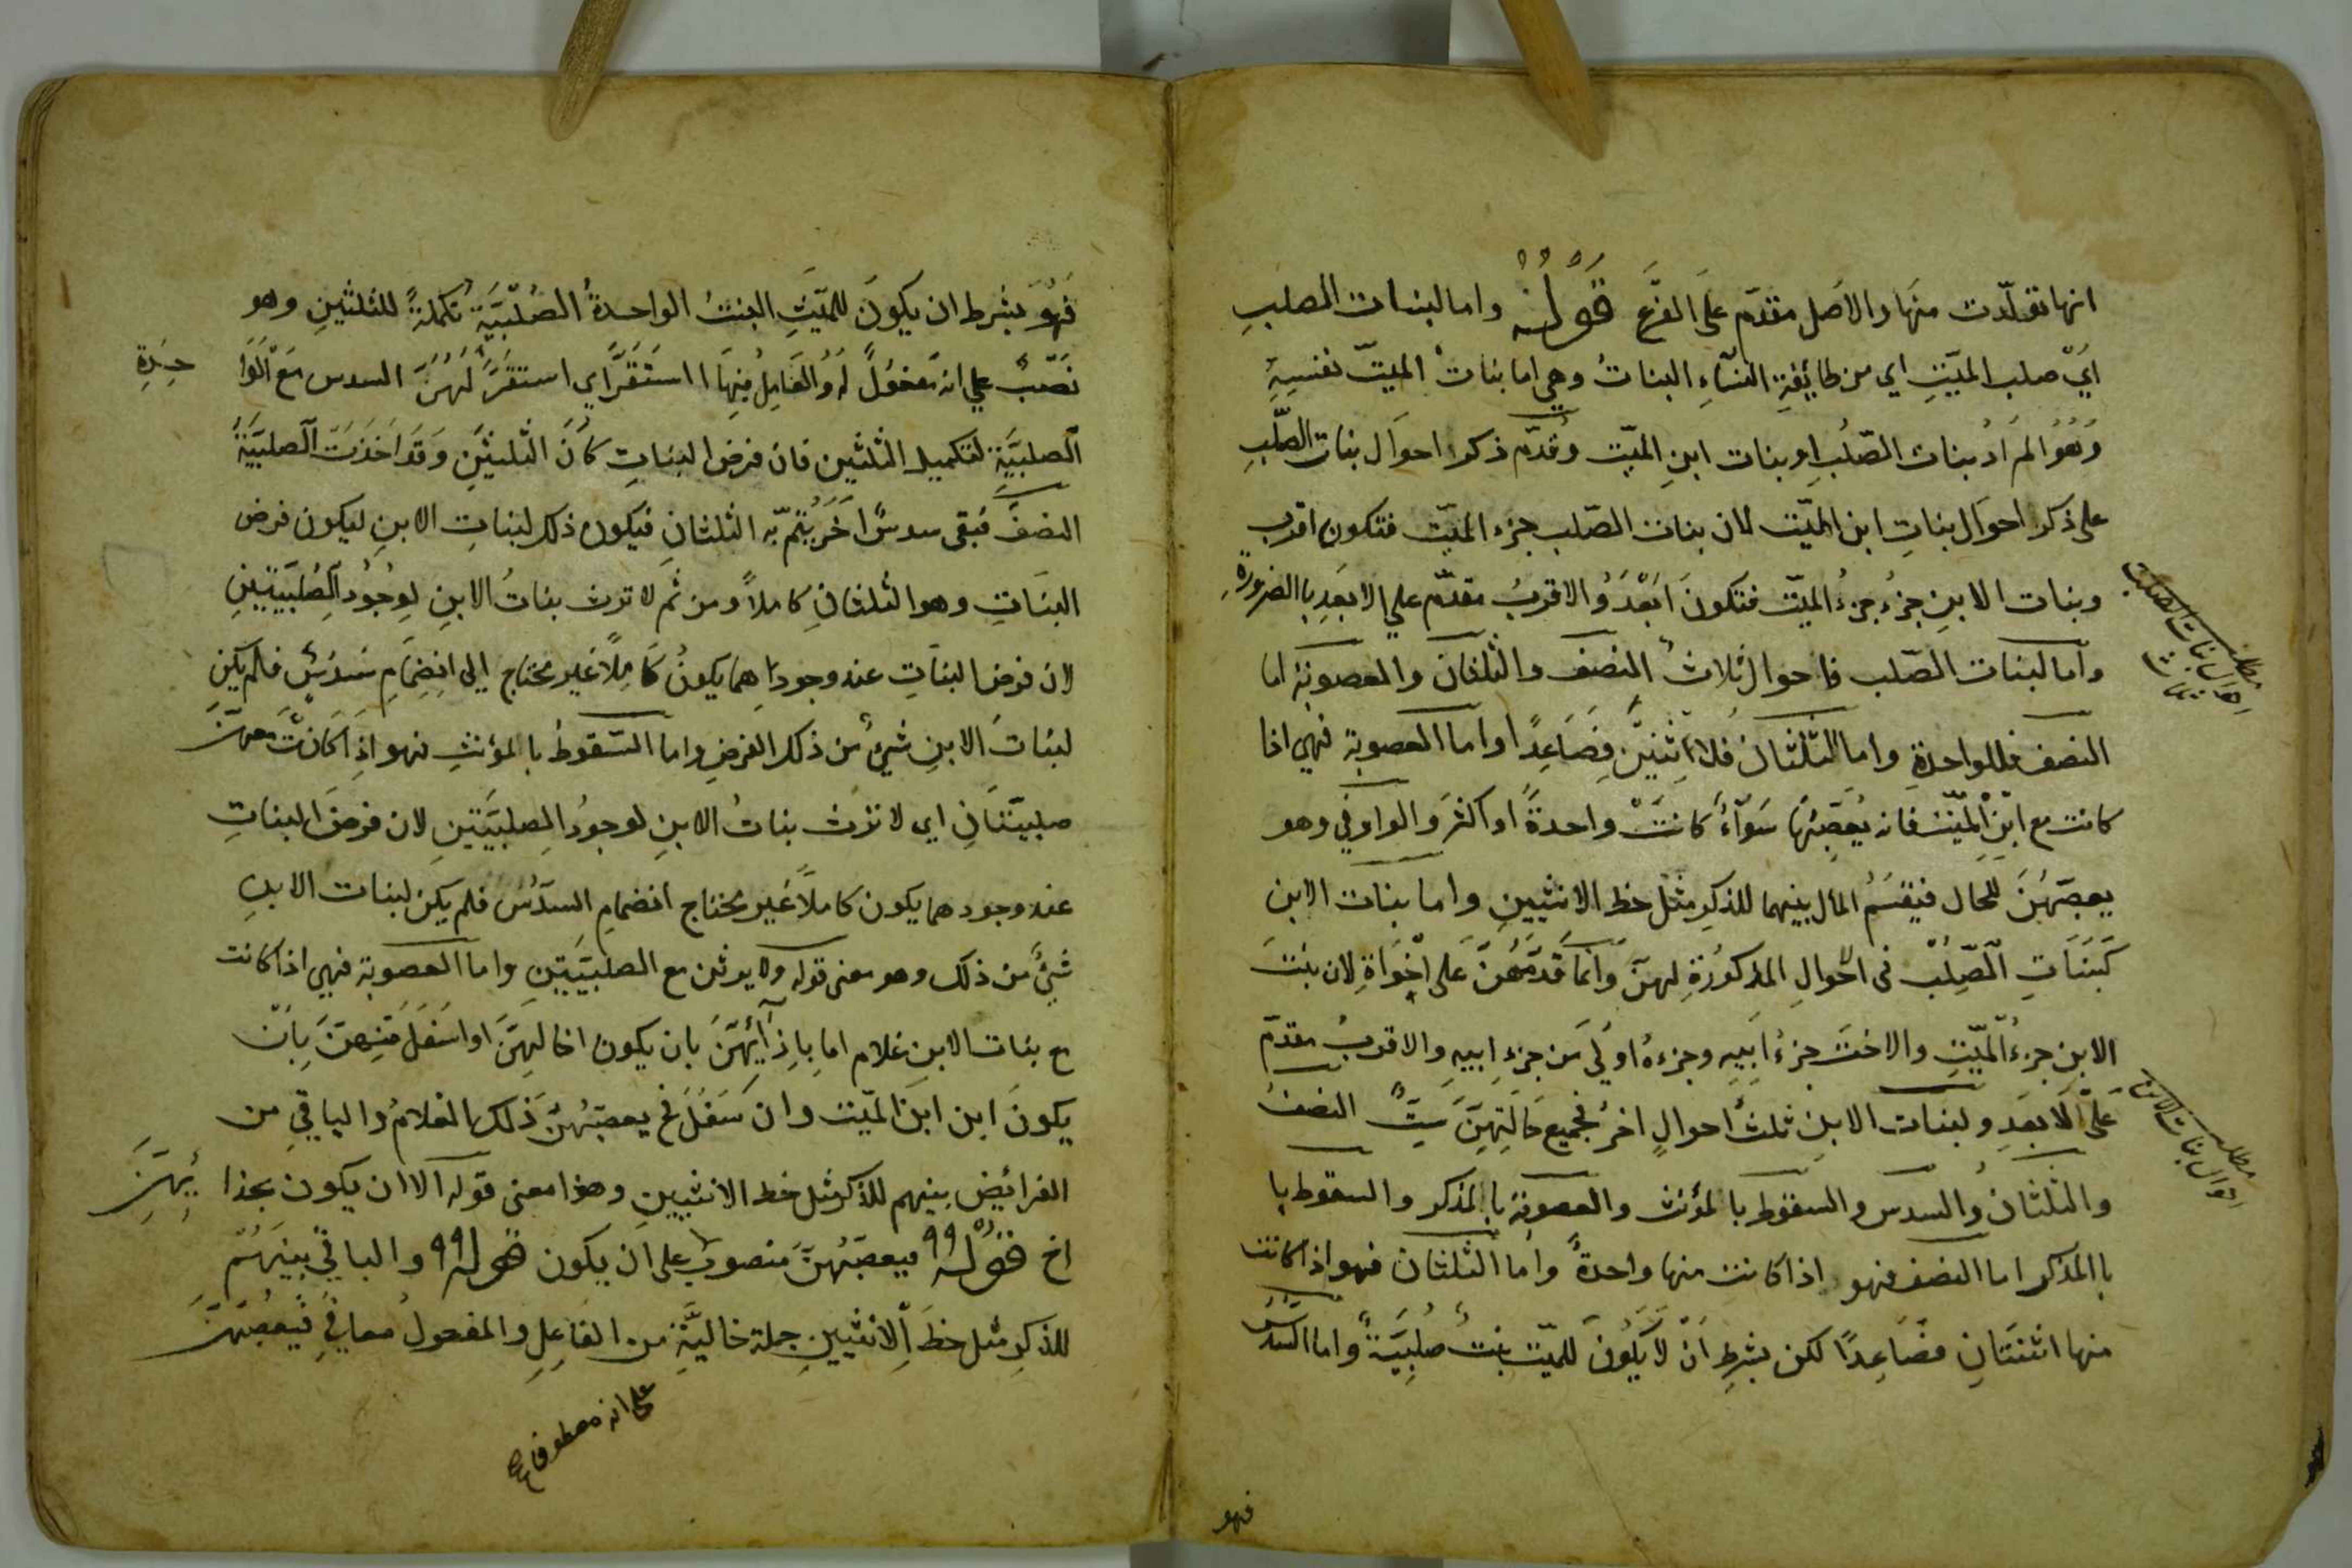 انها تولّدت منها والاصل مقدّم على الفرع قوله واما لبنات الصلب
اي صلب الميّت اي من طائفة النساء البنات وهي اما بنات الميت نفسه
وهو المراد بنات الصّلب او بنات ابن الميّت وقدّم ذكر احوال بنات الصّلب
على ذكر احوال بنات ابن الميّت لان بنات الصّلب جزء الميّت فتكون اقرب
وبنات الابن جزء جزء الميّت فتكون ابعد والاقرب مقدّم علي الابعد باالضرورة
واما لبنات الصّلب فاحوال ثلاث النصف والثلثان والعصوبة اما
النصف فللواحدة واما الثلثان فللاثنين فصاعدًا واما العصوبة فهي اذا
كانت مع ابن الميّت فانه يعصّبها سوآء كانت واحدة او اكثر والواو في وهو
يعصّبهنّ للحال فيقسم المال بينهما للذكر مثل حظ الانثيين واما بنات الابن
كبنات الصّلب فى احوال المذكورة لهنّ وانما قدّمهنّ على اخواة لان بنت
الابن جزء الميّت والاخت جزء ابيه وجزءه اولى من جزء ابيه والاقرب مقدّم
على الابعد ولبنات الابن ثلث احوال اخر فجميع حالتهنّ ستّ النصف
والثلثان والسدس والسقوط بالمؤنث والعصوبة باالمذكر والسقوط با
باالمذكر اما النصف فهو اذا كانت منها واحدة واما الثلثان فهو اذا كانت
منها اثنتان فصاعدًا لكن بشرط ان لا يكون للميّت بنت صلبيّة واما السّدس
فهو
مطلب احوال بنات الصلب
مطلب احوال بنات الابن
فهو بشرط ان يكون للميّت البنت الواحدة الصلبيّة تكملة للثلثين وهو
نصب علي انه مفعول له والعامل فيها استقرّ اي استقرّ لهنّ السدس مع الوا حدة
الصلبيّة لتكميل الثلثين فان فرض البنات كان الثلثين وقد اخذت الصلبيّة
النصف فبقى سدس اخر يتمّ به الثلثان فيكون ذلك لبنات الابن ليكون فرض
البنات وهو الثلثان كاملاً ومن ثم لا ترث بنات الابن لوجود الصلبيتين
لان فرض البنات عند وجوداهما يكون كاملاً غير محتاج الي انضمام سدس فلم يكن
لبنات الابن شيئ من ذلك الفرض واما السقوط باالمؤنث فهو اذا كانت معهنّ
صلبيّتان اي لا ترث بنات الابن لوجود الصلبيّتين لان فرض البنات
عند وجودهما يكون كاملاً غير محتاج انضمام السدس فلم يكن لبنات الابن
شيئ من ذلك وهو معنى قوله ولا يرثن مع الصلبيتين واما العصوبة فهي اذا كانت
مع بنات الابن غلام اما باذآئهنّ بان يكون اخا لهنّ او اسفل منهنّ بان
يكون ابن ابن الميّت وان سفل فح يعصبهنّ ذلك الغلام والباقي من
الفرائض بينهم للذكر مثل حظ الانثيين وهذا معنى قوله الا ان يكون بحذا ئهنّ
اخ قوله فيعصبهنّ منصوب على ان يكون قوله والباقي بينهم
للذكر مثل حظ الانثيين جملة حالية من الفاعل والمفعول معا في فيعصبهنّ
على انه معطوف